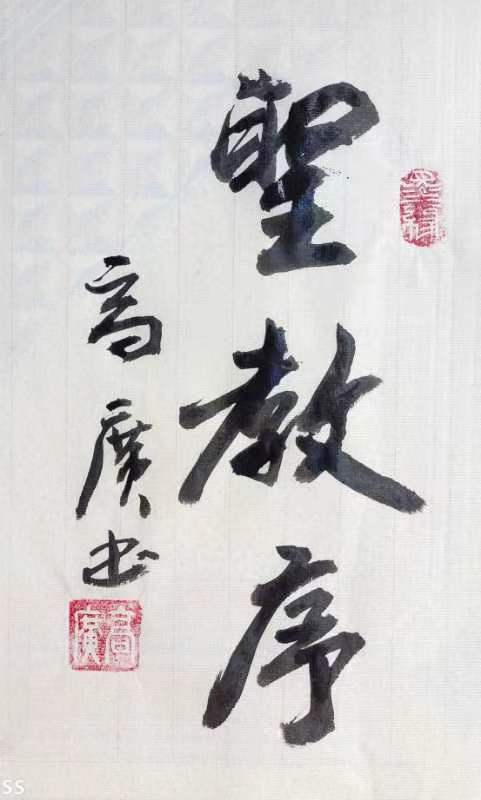 聖教序
高广书
高廣
SS